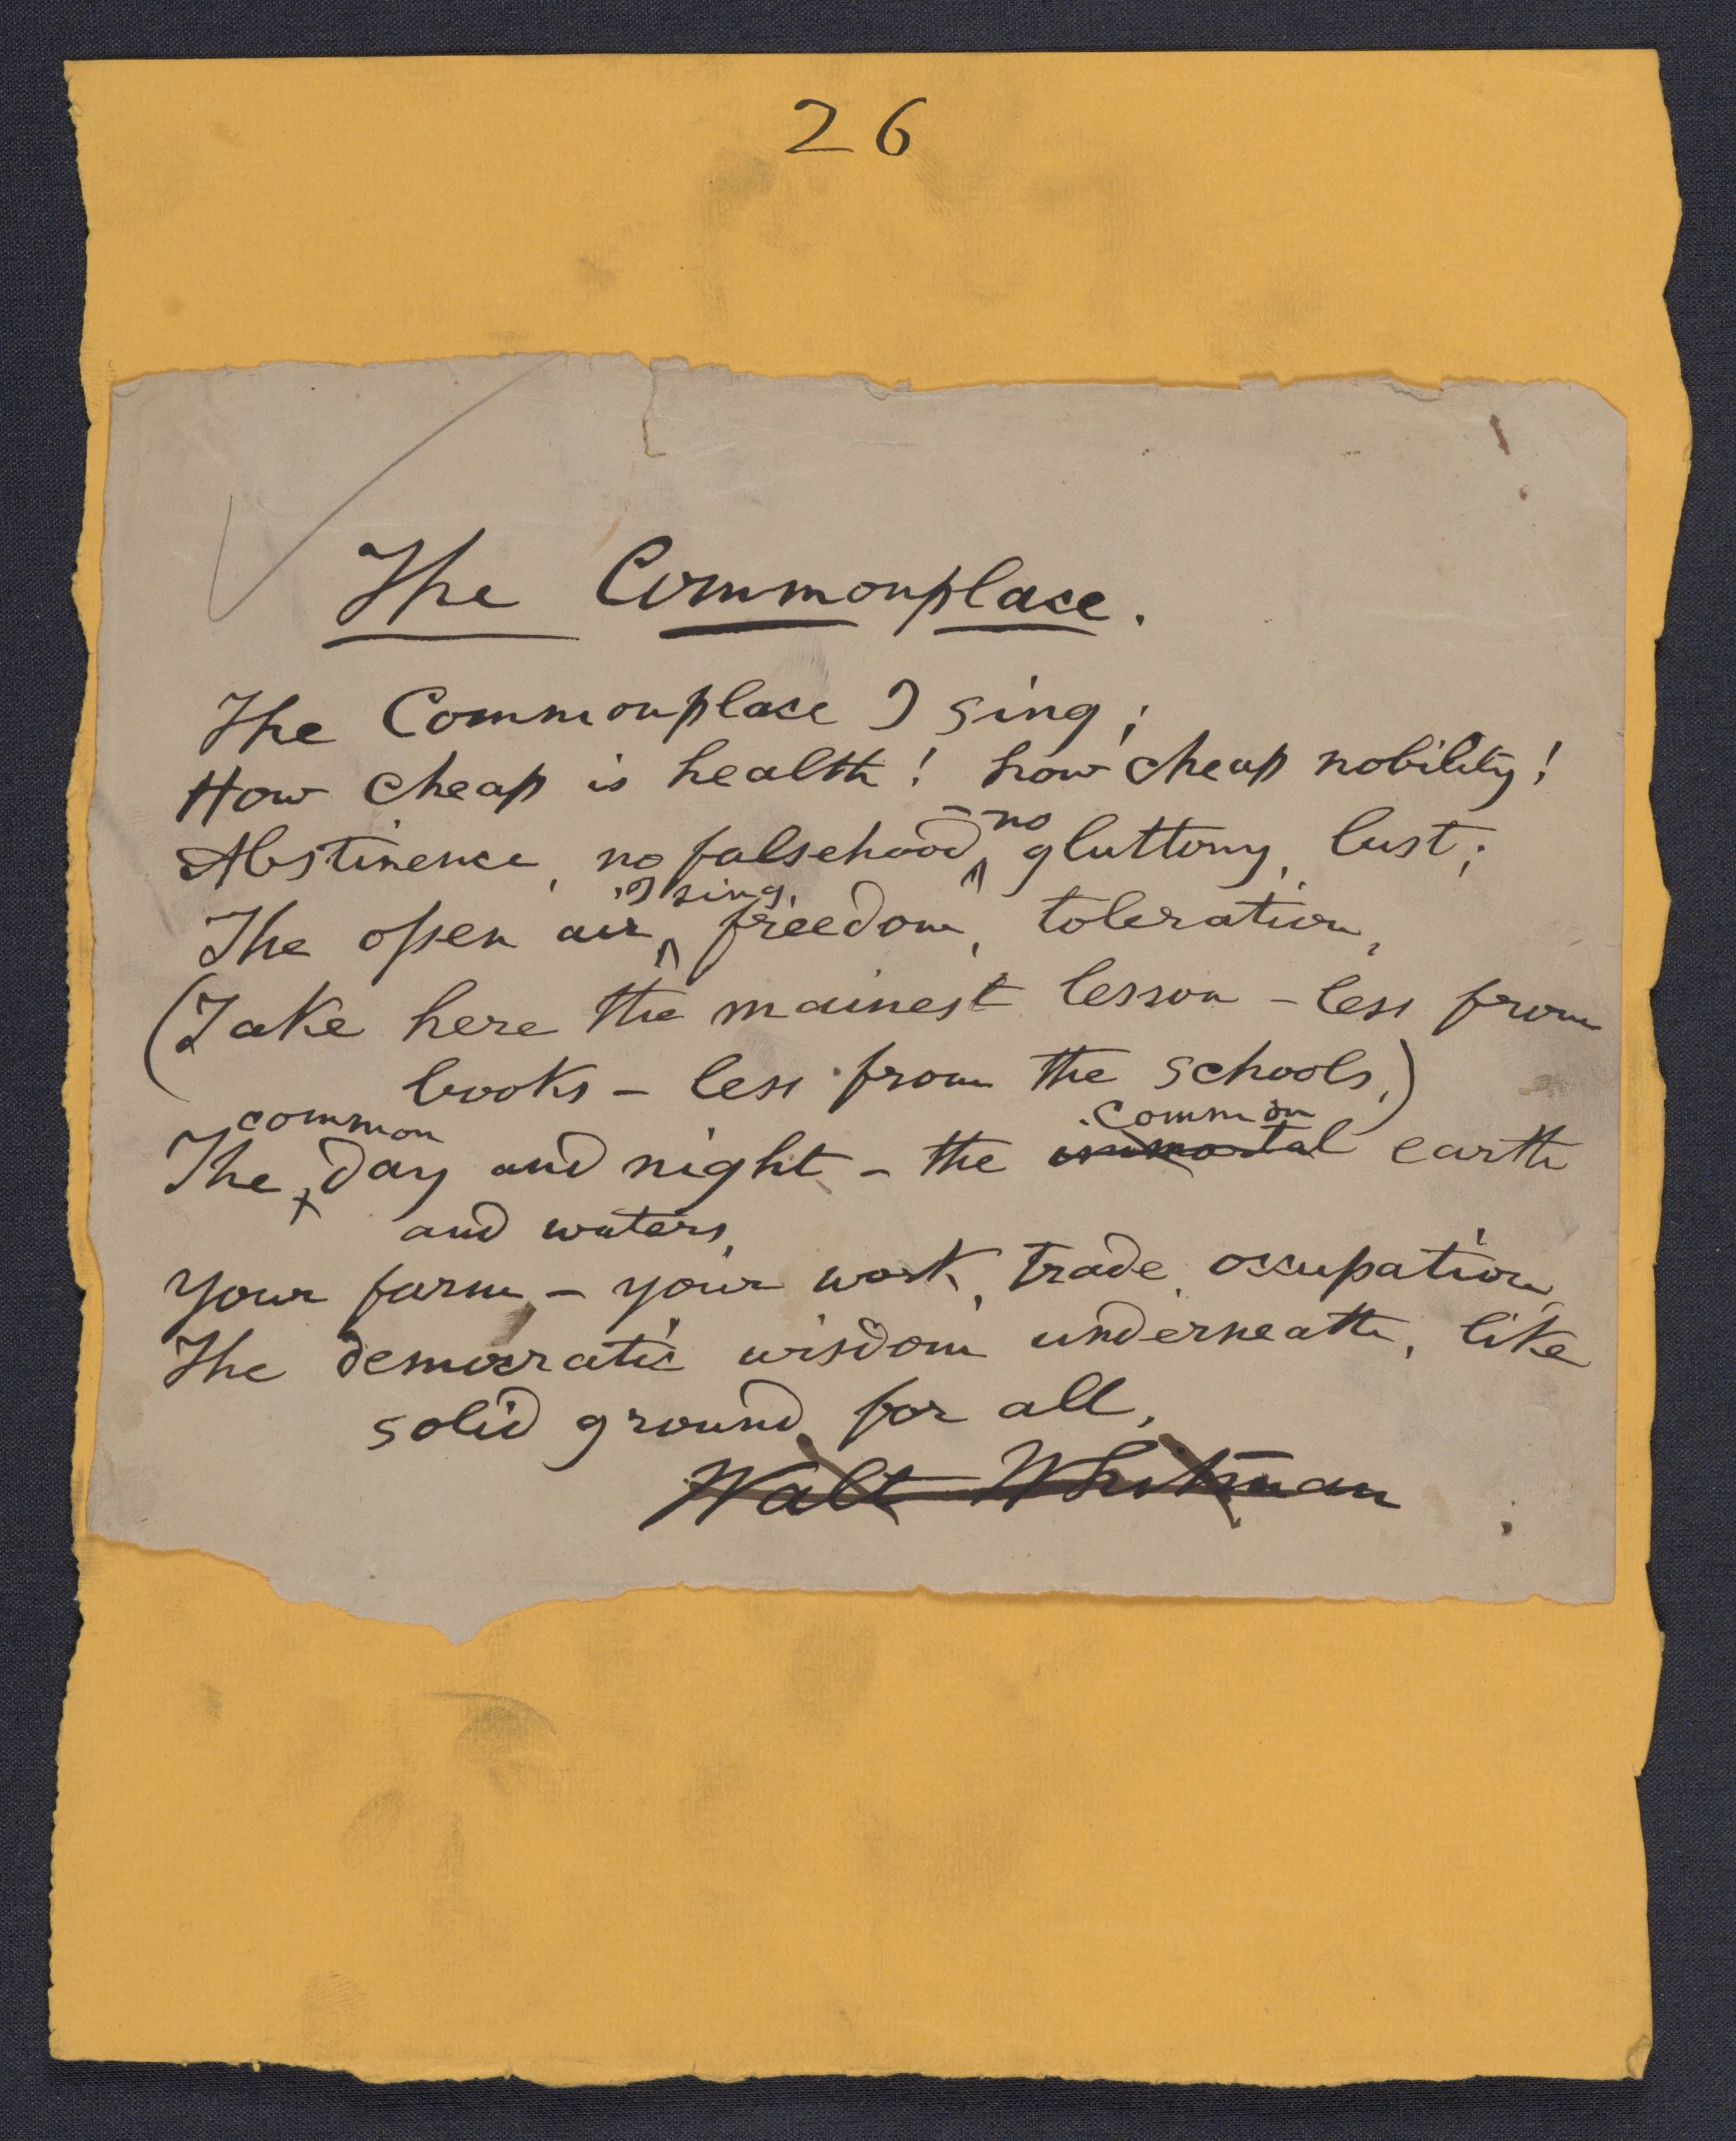 26
The Commonplace.
The Commonplace I sing;
How cheap is health! how cheap nobility!
Abstinence, no falsehood, no gluttony, lust;
The open air I sing, freedom, toleration,
(Take here the mainest lesson – less from
books – less from the schools,)
The common day and night – the immortal common earth
and waters,
Your farm – your work, trade, occupation,
The democratic wisdom underneath, like
solid ground for all.
Walt Whitman